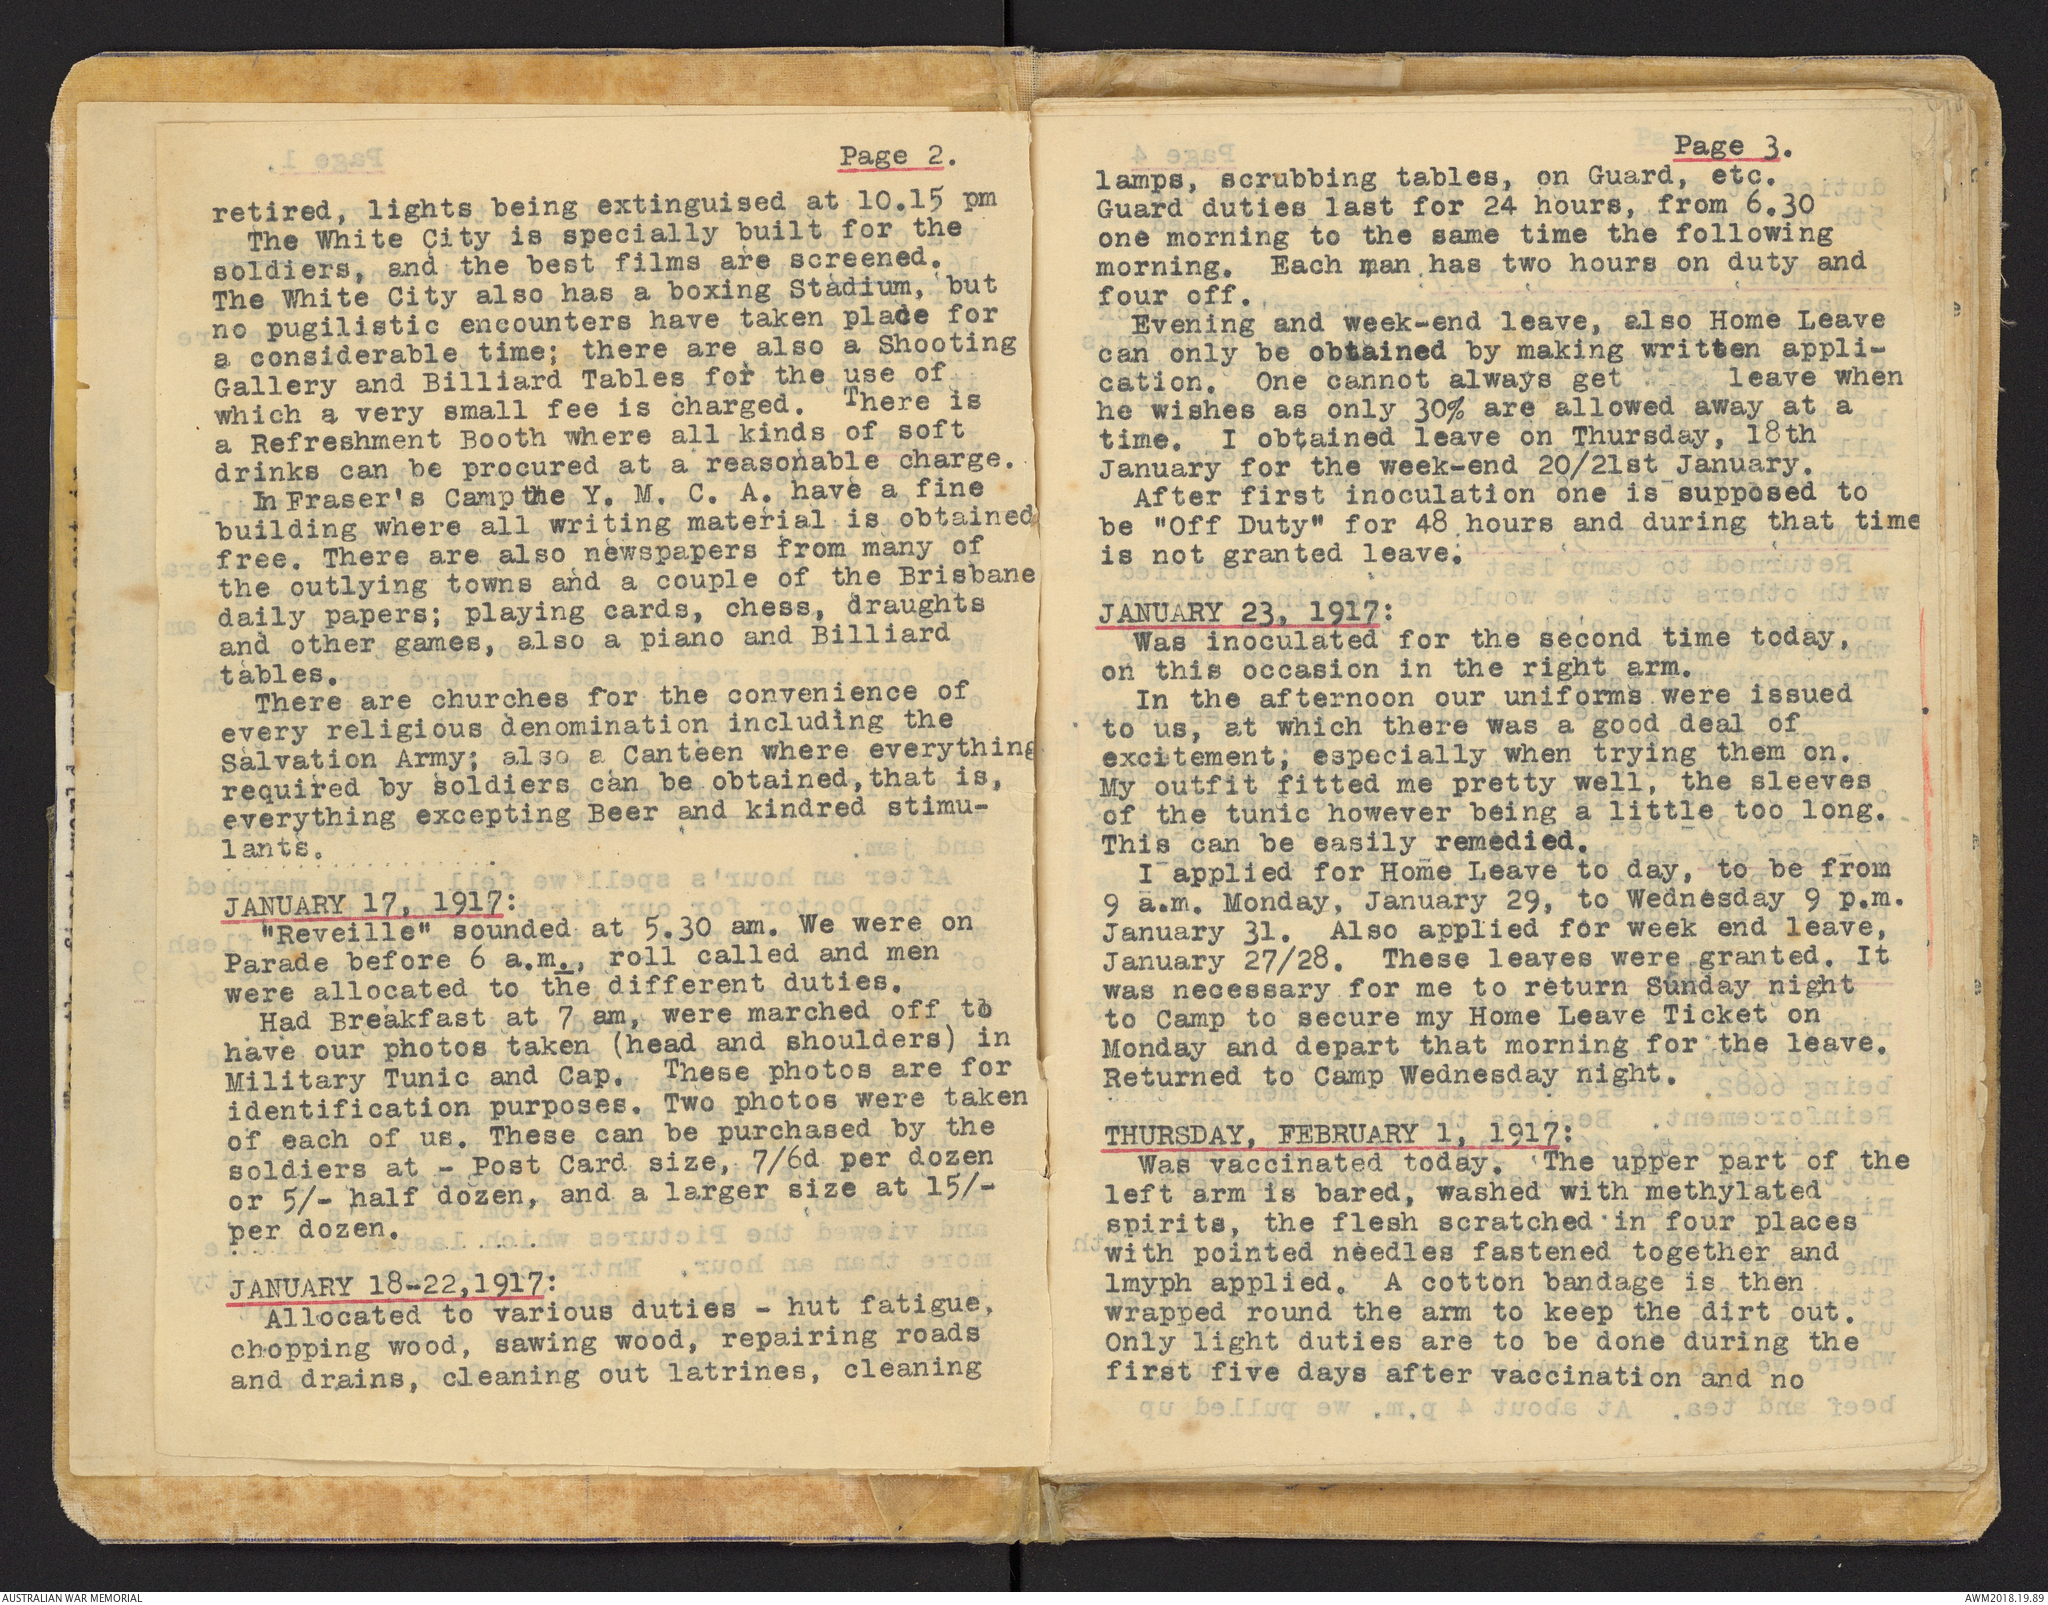 Page 2.
retired, lights being extinguised at 10.15 pm
The White City is specially built for the
soldiers, and the best films are screened.
The White City also has a boxing Stadium, but
no pugilistic encounters have taken place for
a considerable time; there are also a Shooting
Gallery and Billiard Tables for the use of
which a very small fee is charged. There is
a Refreshment Booth where all kinds of soft
drinks can be procured at a reasonable charge.
In Fraser's Camp the Y. M. C. A. have a fine
building where all writing material is obtained
free. There are also newspapers from many of
the outlying towns and a couple of the Brisbane
daily papers; playing cards, chess, draughts
and other games, also a piano and Billiard
tables.
There are churches for the convenience of
every religious denomination including the
Salvation Army; also a Canteen where everything
required by soldiers can be obtained, that is,
everything excepting Beer and kindred stimu-
lants.
JANUARY 17, 1917:
"Reveille" sounded at 5.30 am. We were on
Parade before 6 a.m., roll called and men
were allocated to the different duties.
Had Breakfast at 7 am, were marched off to
have our photos taken (head and shoulders) in
Military Tunic and Cap. These photos are for
identification purposes. Two photos were taken
of each of us. These can be purchased by the
soldiers at - Post Card size, 7/6d per dozen
or 5/- half dozen, and a larger size at 15/-
per dozen.
JANUARY 18-22,1917:
Allocated to various duties - hut fatigue,
chopping wood, sawing wood, repairing roads
and drains, cleaning out latrines, cleaning
Page 3.
lamps, scrubbing tables, on Guard, etc.
Guard duties last for 24 hours, from 6.30
one morning to the same time the following
morning. Each man has two hours on duty and
four off.
Evening and week-end leave, also Home Leave
can only be obtained by making written appli-
cation. One cannot always get leave when
he wishes as only 30% are allowed away at a
time. I obtained leave on Thursday, 18th
January for the week-end 20/21st January.
After first inoculation one is supposed to
be "Off Duty" for 48 hours and during that time
is not granted leave.
JANUARY 23, 1917:
Was inoculated for the second time today,
on this occasion in the right arm.
In the afternoon our uniforms were issued
to us, at which there was a good deal of
excitement; especially when trying them on.
My outfit fitted me pretty well, the sleeves
of the tunic however being a little too long.
This can be easily remedied.
I applied for Home Leave to day, to be from
9 a.m. Monday, January 29, to Wednesday 9 p.m.
January 31. Also applied for week end leave,
January 27/28. These leaves were granted. It
was necessary for me to return Sunday night
to Camp to secure my Home Leave Ticket on
Monday and depart that morning for the leave.
Returned to Camp Wednesday night.
THURSDAY, FEBRUARY 1, 1917:
Was vaccinated today. The upper part of the
left arm is bared, washed with methylated
spirits, the flesh scratched in four places
with pointed needles fastened together and
lmyph applied. A cotton bandage is then
wrapped round the arm to keep the dirt out.
Only light duties are to be done during the
first five days after vaccination and no
AUSTRALIAN WAR MEMORIAL
AWM2018.19.89